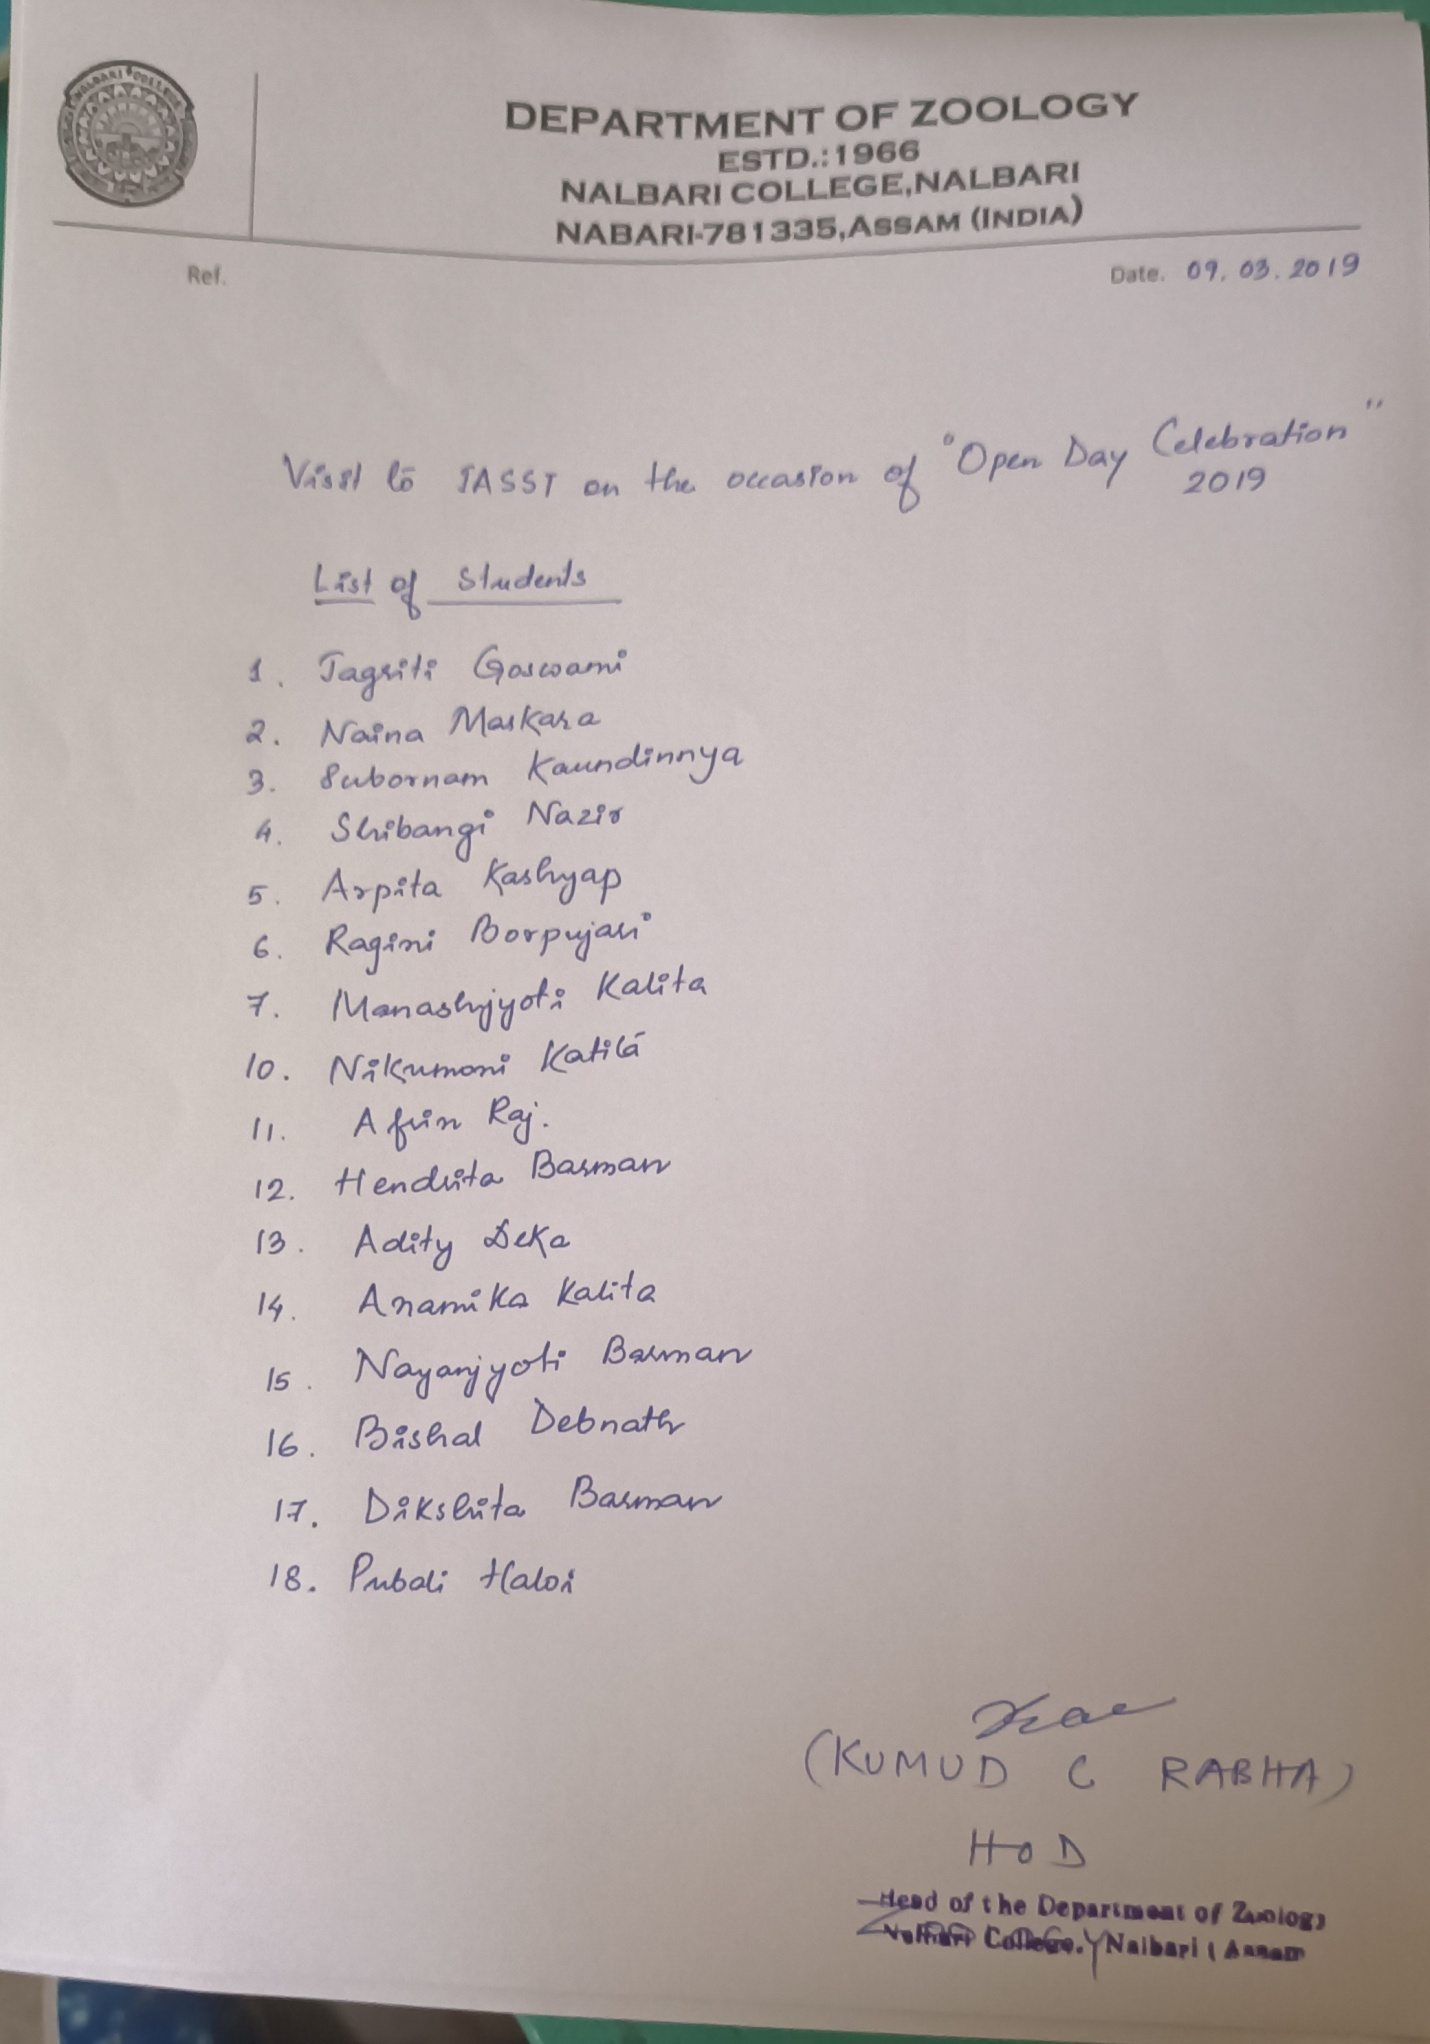 NALBARI COLLEGE
DEPARTMENT OF ZOOLOGY
ESTD.:1966
NALBARI COLLEGE,NALBARI
NABARI-781335,ASSAM (INDIA)
Ref.
Date. 09.03.2019
Visit to IASST on the occasion of "Open Day Celebration"
2019
List of Students
1. Jagriti Goswami
2. Naina Maskara
3. Subornam Kaundinnya
4. Shibangi Nazir
5. Arpita Kashyap
6. Ragini Borpujari
7. Manashjyoti Kalita
10. Nikumoni Katila
11. Afrin Raj.
12. Hendrita Barman
13. Adity Deka
14. Anamika Kalita
15. Nayanjyoti Barman
16. Bishal Debnath
17. Dikshita Barman
18. Pubali Haloi
(KUMUD C RABHA)
HOD
Head of the Department of Zoology
Nalbari College, Nalbari (Assam